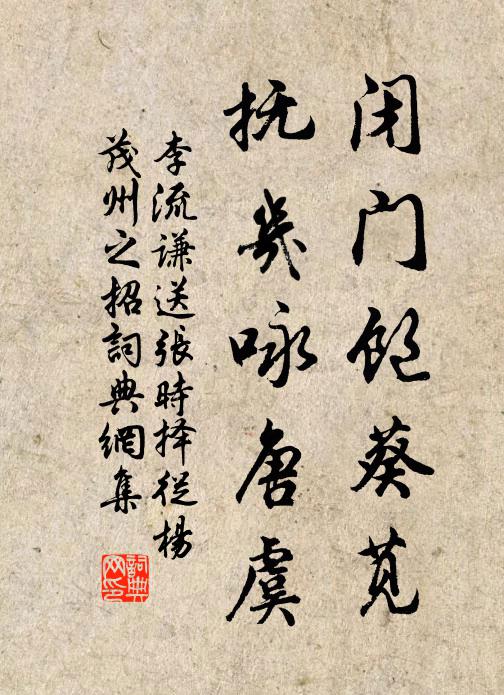 闭门饱葵苋
抚几咏唐虞
李流谦送張時择從楊
茂州之招詞典網集
詞典网印